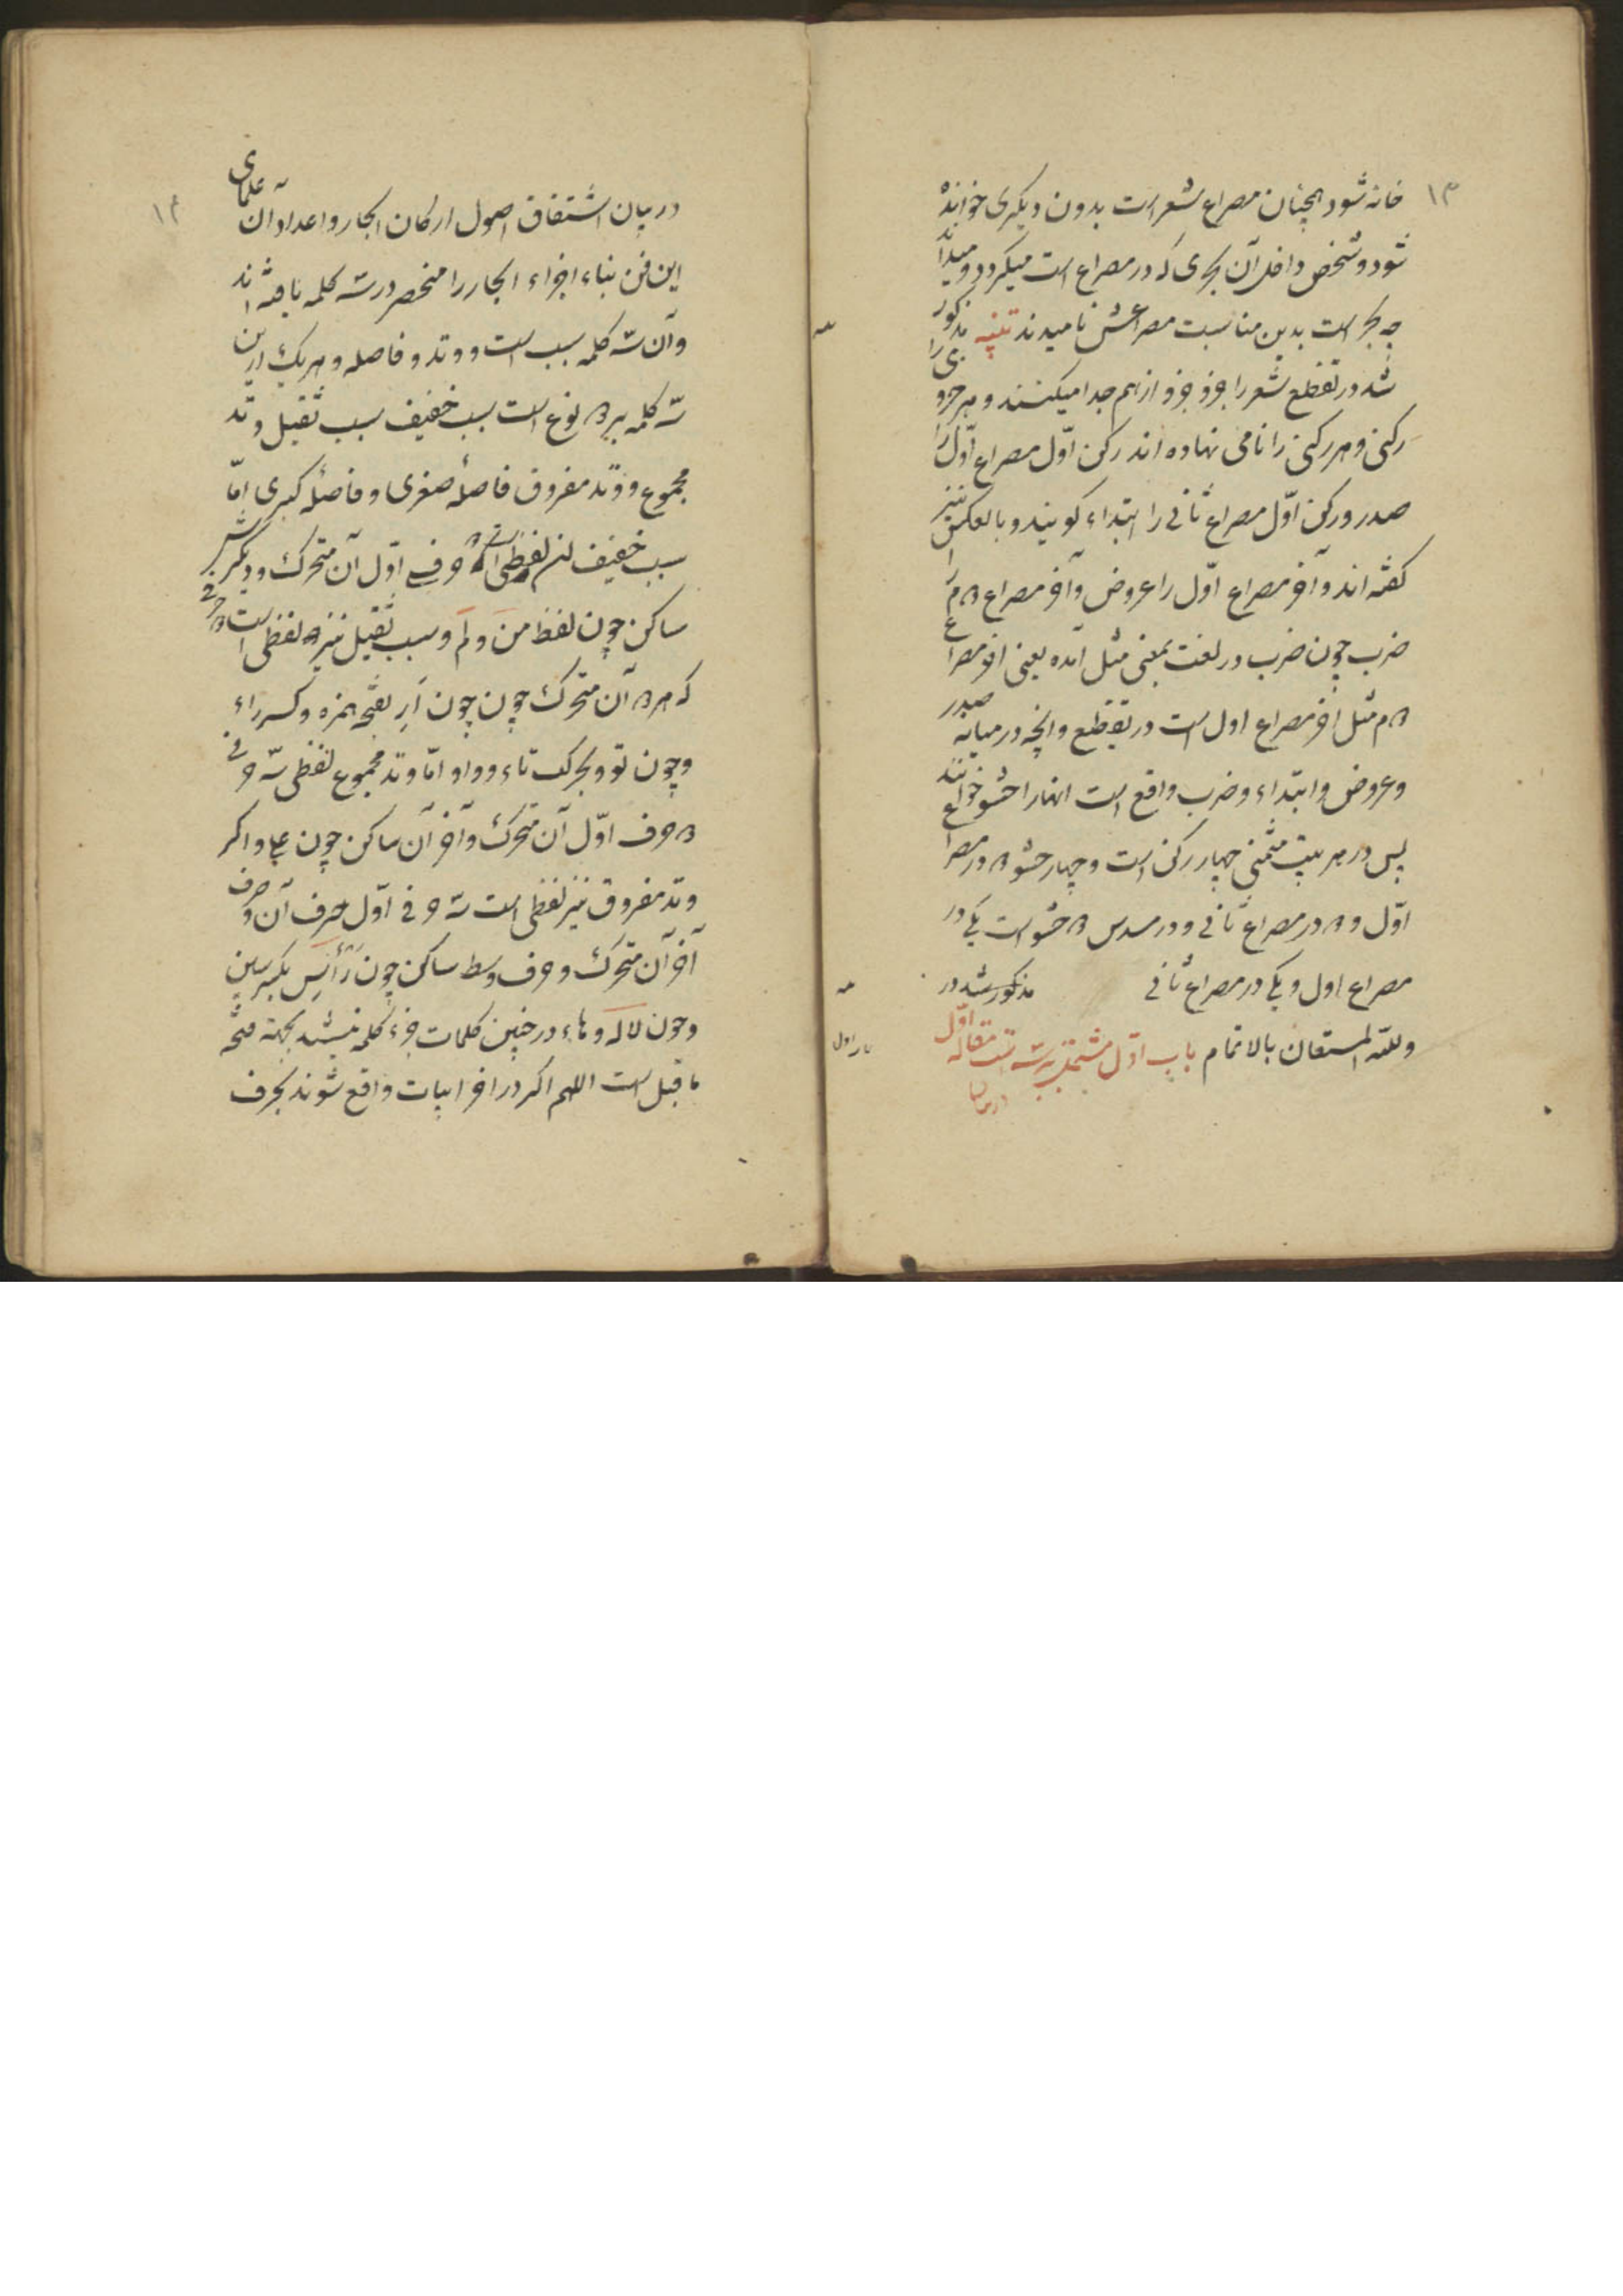 ۱۳
خانه شود همچنان مصراع شعر است بدون دیکری خوانده
شود و شخص داخل آن بحری که در مصراع است میکردد و میداند
چه بحر است بدین مناسبت مصراعش نامیدند تنبیه مذکور
شد در تقطیع شعر را جزو جزو از هم جدا میکنند و هر جزوی را
رکنی و هر رکنی را نامی نهاده اند رکن اوّل مصراع اوّل را
صدر و رکن اوّل مصراع ثانی را ابتداء کویند و بالعکس نیز
کفته اند و آخر مصراع اوّل را عروض و آخر مصراع ۲م را
ضرب چون ضرب در لغت بمعنی مثل آمده یعنی اخر مصراع
۲م مثل اخر مصراع اول است در تقطیع و انچه در میانه صدر
و عروض و ابتداء و ضرب واقع است انها را حشو خوانند
پس در هر بیت مثمنی چهار رکن است و چهار حشو ۲ در مصراع
اوّل و ۲ در مصراع ثانی و در مسدس ۲ حشو است یکی در
مصراع اول و یکی در مصراع ثانی مذکور شد در
و للّه المستعان بالاتمام باب اوّل مشتمل بر سه است مقاله اوّل
در بیان
۱۴
در بیان اشتقاق اصول ارکان ابحار و اعداد آن علمای
این فن بناء اجزاء ابحار را منحصر در سه کلمه یافته اند
و آن سه کلمه سبب است و وتد و فاصله و هر یک ازین
سه کلمه بر ۲ نوع است سبب خفیف سبب ثقیل وتد
مجموع و وتد مفروق فاصلهٔ صغری و فاصلهٔ کبری امّا
سبب خفیف لفظی است ۲ حرفی اوّل آن متحرک و دیکرش
ساکن چون لفظ من و لم و سبب ثقیل نیز لفظی است ۲ حرفی
که هر ۲ آن متحرک چون چون اَرِ بفتح همزه و کسر راء
و چون تو و بحرکت تاء و واو امّا وتد مجموع لفظی سه حرفی
۲ حرف اوّل آن متحرک و آخر آن ساکن چون علی و اکر
وتد مفروق نیز لفظی است سه حرفی اوّل حرف آن و حرف
آخر آن متحرک و حرف وسط ساکن چون رَأسِ بکسر سین
و چون لاله و هاء در چنین کلمات جزء کلمه نیستند بجهة فتحه
ما قبل است اللهم اکر در اخر ابیات واقع شوند بحرف